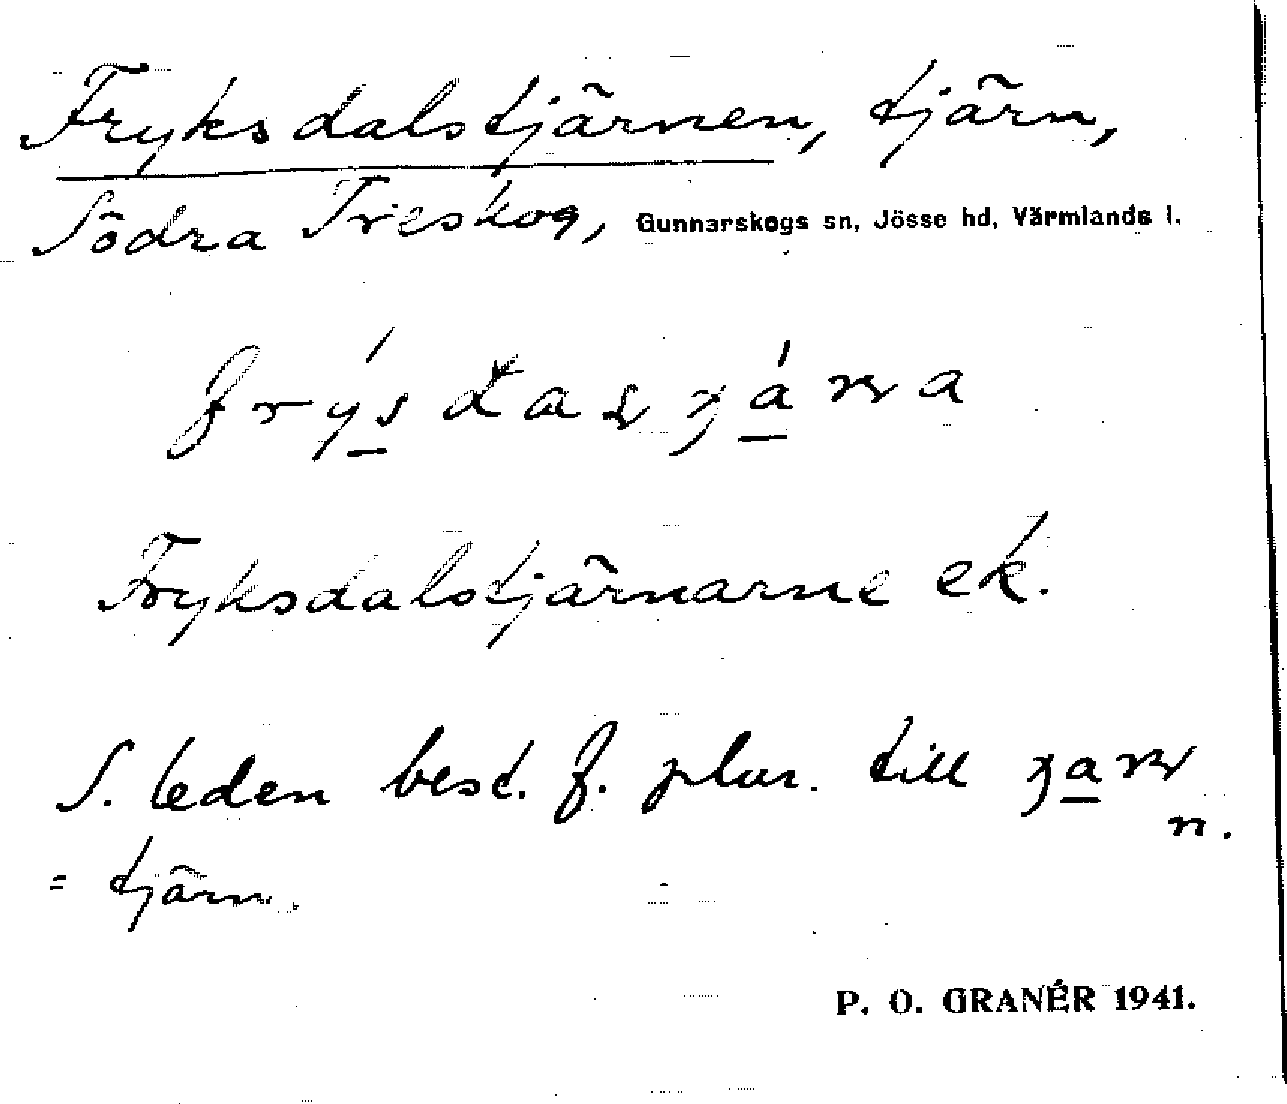 Fryksdalstjärnen, tjärn,
Södra Treskog, Gunnarskogs sn, Jösse hd, Värmlands l.
Fryksdalstjärnarne ek.
S. leden best. f. plur. till
n.
= tjärn.
P. O. GRANÉR 1941.